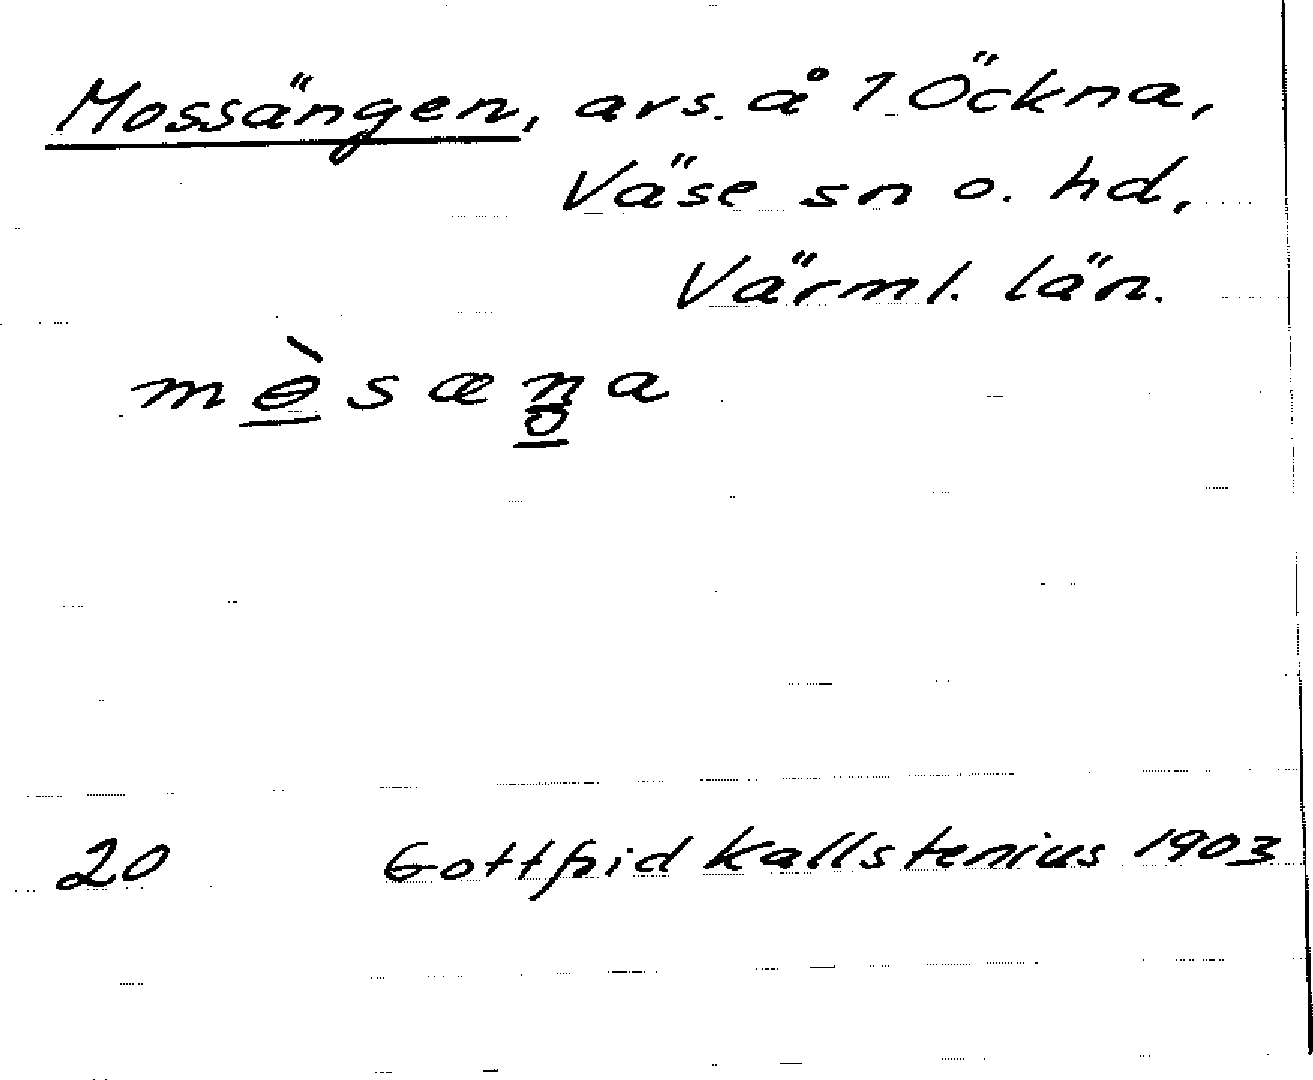 Mossängen, avs. å 1 Öckna,
Väse sn o. hd,
Värml. län.
mɵ̀sæŋa
20 Gottfrid Kallstenius 1903